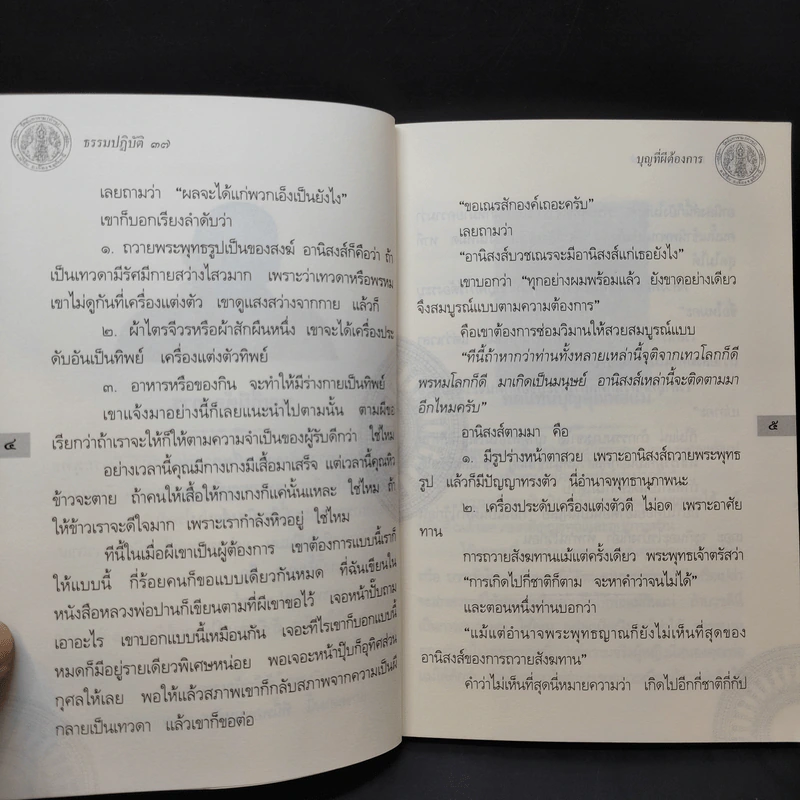 ธรรมปฏิบัติ ๓๗
เลยถามว่า “ผลจะได้แก่พวกเอ็งเป็นยังไง”
เขาก็บอกเรียงลำดับว่า
๑. ถวายพระพุทธรูปเป็นของสงฆ์ อานิสงส์ก็คือว่า ถ้า
เป็นเทวดามีรัศมีกายสว่างไสวมาก เพราะว่าเทวดาหรือพรหม
เขาไม่ดูกันที่เครื่องแต่งตัว เขาดูแสงสว่างจากกาย แล้วก็
๒. ผ้าไตรจีวรหรือผ้าสักผืนหนึ่ง เขาจะได้เครื่องประ
ดับอันเป็นทิพย์ เครื่องแต่งตัวทิพย์
๓. อาหารหรือของกิน จะทำให้มีร่างกายเป็นทิพย์
เขาแจ้งมาอย่างนี้ก็เลยแนะนำไปตามนั้น ตามผีขอ
เรียกว่าถ้าเราจะให้ก็ให้ตามความจำเป็นของผู้รับดีกว่า ใช่ไหม
อย่างเวลานี้คุณมีกางเกงมีเสื้อมาเสร็จ แต่เวลานี้คุณหิว
ข้าวจะตาย ถ้าคนให้เสื้อให้กางเกงก็แค่นั้นแหละ ใช่ไหม ถ้า
ให้ข้าวเราจะดีใจมาก เพราะเรากำลังหิวอยู่ ใช่ไหม
ทีนี้ในเมื่อผีเขาเป็นผู้ต้องการ เขาต้องการแบบนี้เราก็
ให้แบบนี้ กี่ร้อยคนก็ขอแบบเดียวกันหมด ที่ฉันเขียนใน
หนังสือหลวงพ่อปานก็เขียนตามที่ผีเขาขอไว้ เจอหน้าปั๊บถาม
เอาอะไร เขาบอกแบบนี้เหมือนกัน เจอะทีไรเขาก็บอกแบบนี้
หมดก็มีอยู่รายเดียวพิเศษหน่อย พอเจอะหน้าปุ๊บก็อุทิศส่วน
กุศลให้เลย พอให้แล้วสภาพเขาก็กลับสภาพจากความเป็นผี
กลายเป็นเทวดา แล้วเขาก็ขอต่อ
๔
บุญที่ผีต้องการ
“ขอเณรสักองค์เถอะครับ”
เลยถามว่า
“อานิสงส์บวชเณรจะมีอานิสงส์แก่เธอยังไง”
เขาบอกว่า “ทุกอย่างผมพร้อมแล้ว ยังขาดอย่างเดียว
จึงสมบูรณ์แบบตามความต้องการ”
คือเขาต้องการซ่อมวิมานให้สวยสมบูรณ์แบบ
“ทีนี้ถ้าหากว่าท่านทั้งหลายเหล่านี้จุติจากเทวโลกก็ดี
พรหมโลกก็ดี มาเกิดเป็นมนุษย์ อานิสงส์เหล่านี้จะติดตามมา
อีกไหมครับ”
อานิสงส์ตามมา คือ
๑. มีรูปร่างหน้าตาสวย เพราะอานิสงส์ถวายพระพุทธ
รูป แล้วก็มีปัญญาทรงตัว นี่อำนาจพุทธานุภาพนะ
๒. เครื่องประดับเครื่องแต่งตัวดี ไม่อด เพราะอาศัย
ทาน
การถวายสังฆทานแม้แต่ครั้งเดียว พระพุทธเจ้าตรัสว่า
“การเกิดไปกี่ชาติก็ตาม จะหาคำว่าจนไม่ได้”
และตอนหนึ่งท่านบอกว่า
“แม้แต่อำนาจพระพุทธญาณก็ยังไม่เห็นที่สุดของ
อานิสงส์ของการถวายสังฆทาน”
คำว่าไม่เห็นที่สุดนี่หมายความว่า เกิดไปอีกกี่ชาติกี่กัป
๕